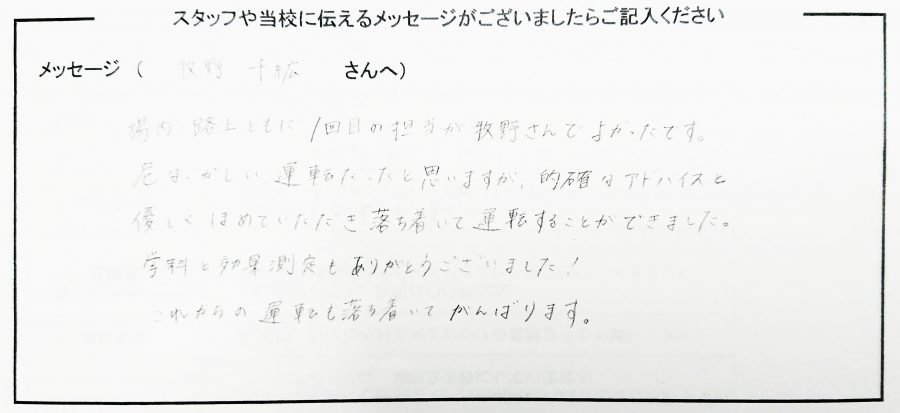 スタッフや当校に伝えるメッセージがございましたらご記入ください
メッセージ ( 牧野 千紘 さんへ)
場内・路上ともに1回目の担当が牧野さんでよかったです。
危なっかしい運転だったと思いますが、的確なアドバイスと
優しくほめていただき落ち着いて運転することができました。
学科と効果測定もありがとうございました!
これからの運転も落ち着いてがんばります。